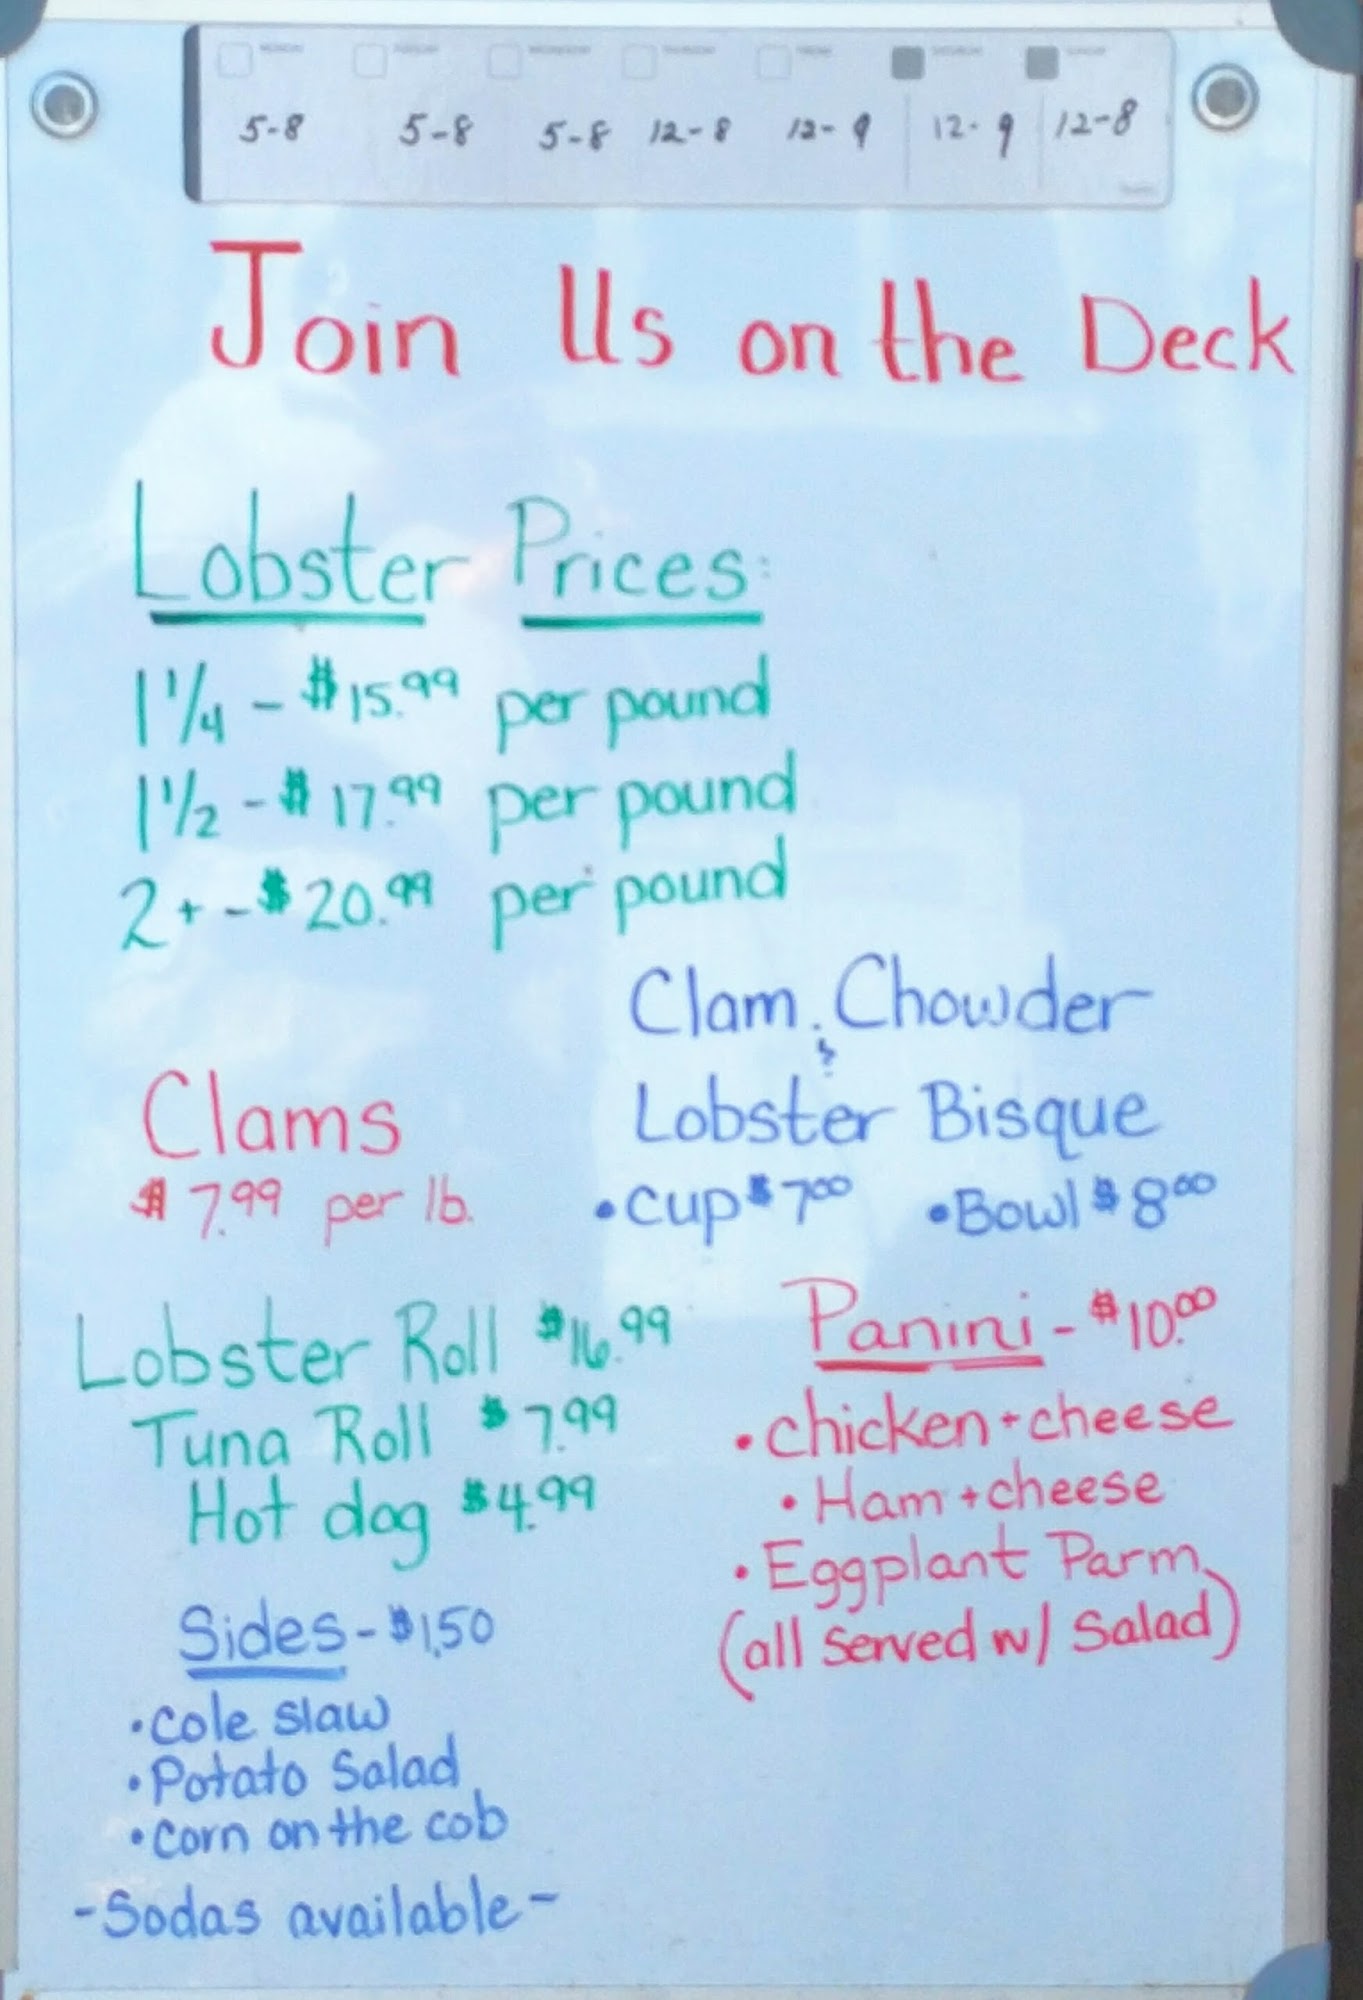 MONDAY TUESDAY WEDNESDAY THURSDAY FRIDAY SATURDAY SUNDAY
5-8 5-8 5-8 12-8 12-9 12-9 12-8
Join Us on the Deck
Lobster Prices:
1 1/4 - $15.99 per pound
1 1/2 - $17.99 per pound
2+ - $20.99 per pound
Clam Chowder
&
Lobster Bisque
• Cup $7.00 • Bowl $8.00
Clams
$7.99 per lb.
Lobster Roll $16.99
Tuna Roll $7.99
Hot dog $4.99
Panini - $10.00
• Chicken + cheese
• Ham + cheese
• Eggplant Parm
(all served w/ Salad)
Sides - $1.50
• Cole slaw
• Potato Salad
• Corn on the cob
- Sodas available -